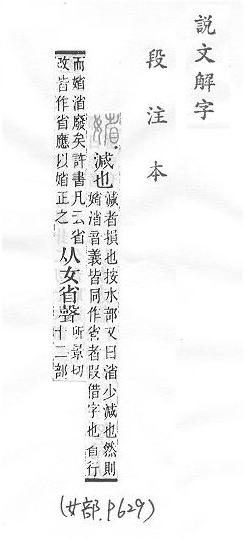 說文解字
段注本
媘
減也減者損也按水部又曰渻少減也然則
媘渻音義皆同作省者叚借字也省行
而媘渻廢矣許書凡云省
改皆作省應以媘正之从女省聲所景切
十二部
(女部.P629)